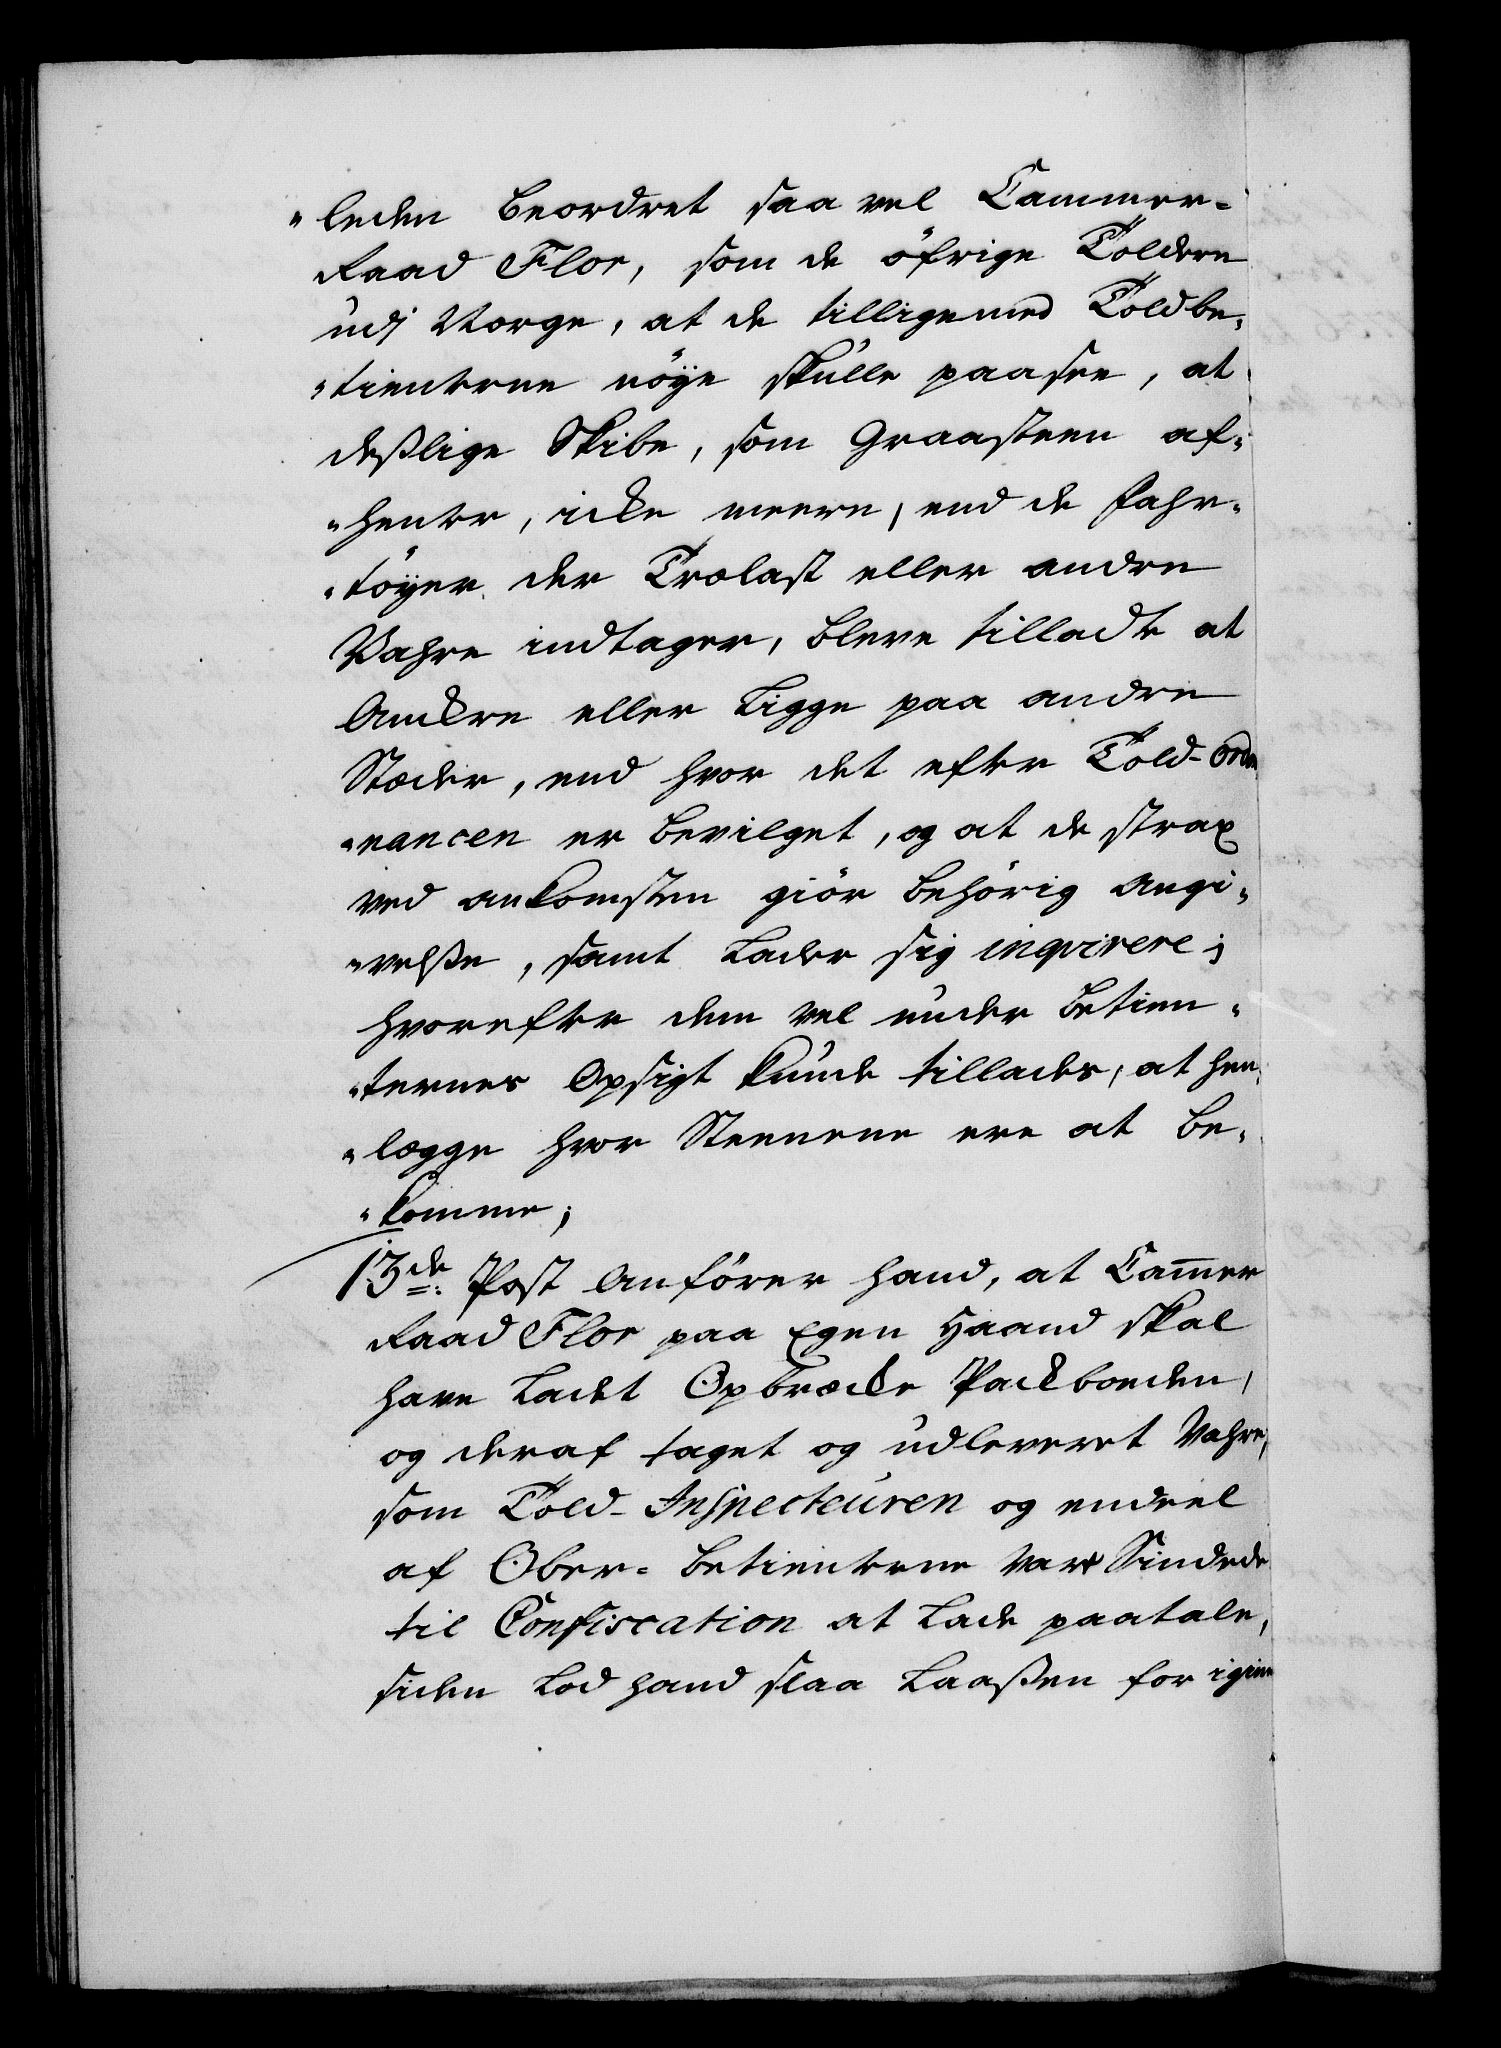 "leden beordret saa vel Cammer-
Raad Flor, som de öfrige Toldere
udj Norge, at de tilligemed Toldbe„
„tienterne nöye skulle paasee, at
deßlige Skibe, som Graasteen af„
„henter, icke meere, end de Fahr„
„töyer der Trælast eller andre
Vahre indtager, bleve tilladte at
Anckre eller ligge paa andre
Stæder, end hvor det efter Told-Ordo
„nancen er bevilget, og at de strax
ved ankomsten giör behörig angi„
„velße, samt lader sig inqvirere;
hvorefter dem vel under betien„
„ternes Opsigt kunde tillades, at hen„
„lægge hvor Steenene ere at be„
„komme;
13de: Post anförer hand, at Cam̄er
Raad Flor paa egen Haand skal
have ladet Opbræcke Packboeden,
og deraf taget og udleveret Vahre,
som Told-Inspecteuren og endeel
af Ober- betienterne var Sindede
til Confiscation at lade paatale,
siden lod hand slaa Laaßen for igien